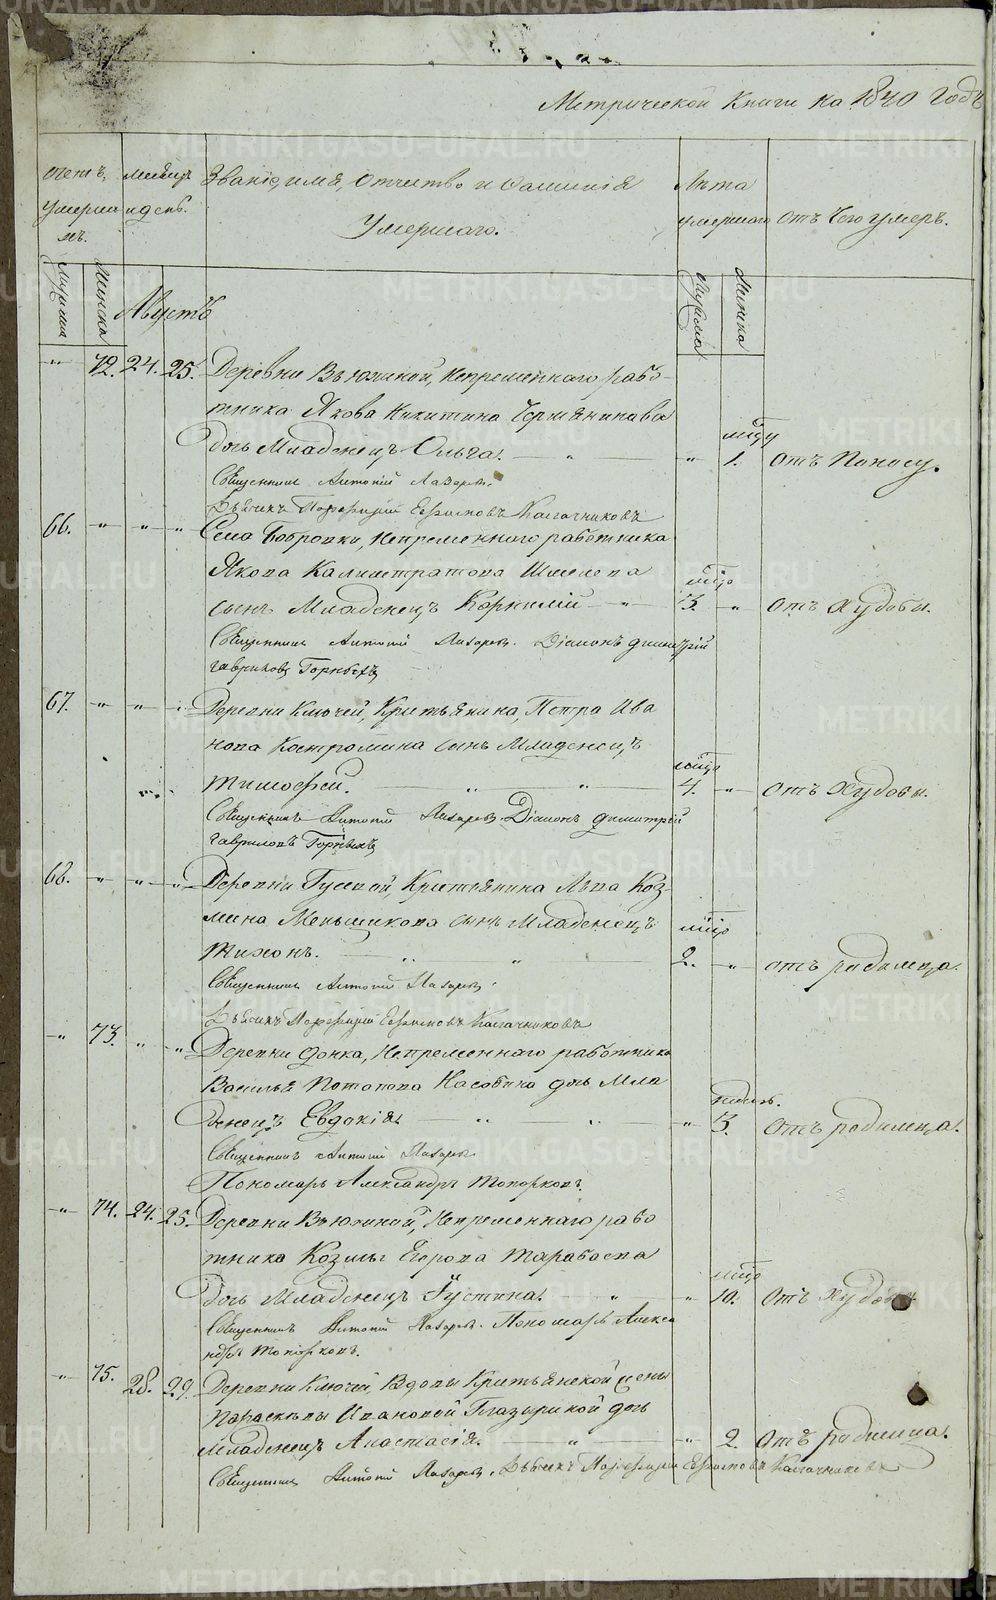 Метрической Книги на 1840 Годъ
счетъ умершихъ.
месяцъ и день.
Званіе, имя, отчество и Фамилія Умершаго.
Лѣта умершаго
отъ Чего умеръ.
Мужеска
Женска
Августъ
Мужеска
Женска
" 72. 24. 25. Деревни Вьюхиной, Непременнаго рабо-
тника Якова Никитина
дочь Младенецъ Ольга. — " — " 1. отъ Поносу.
Священникъ Антоній Лазаревъ.
Дьячекъ Порфирий Ефимовъ Калачниковъ
66. " " " Села Бобровки, Непременнаго работника
Якова Калистратова Шмелева
сынъ Младенецъ Корнилій — " — 3. " отъ Худобы.
Священникъ Антоній Лазаревъ. Діаконъ Димитрій
Гавриловъ Горныхъ
67. " " " Деревни Ключей, Крестьянина, Петра Ива
нова Костромина сынъ Младенецъ
Тимофей. — " — " — 4. " отъ Худобы.
Священникъ Антоній Лазаревъ. Діаконъ Димитрій
Гавриловъ Горныхъ
68. " " " Деревни Гусевой, Крестьянина Льва Коз-
мина Меньшикова сынъ Младенецъ
Тихонъ. — " — " — 2. " отъ родимца.
Священникъ Антоній Лазаревъ.
Дьячекъ Порфирий Ефимовъ Калачниковъ
" 73. " " Деревни Фомка, Непременнаго работника
Василья Потапова Насобина дочь Мла
денецъ Евдокія. — " — " — " 3. отъ родимца.
недель.
Священникъ Антоній Лазаревъ
Пономарь Александръ Топорковъ.
" 74. 24. 25. Деревни Вьюхиной, Непременнаго рабо
тника Козмы Егорова
дочь Младенецъ Густина. — " — " 10. отъ Худобы
Священникъ Антоній Лазаревъ. Пономарь Алекса
ндръ Топорковъ.
" 75. 28. 29. Деревни Ключей, Вдовы Крестьянской жены
Парасковьи Ивановой Глазыриной дочь
Младенецъ Анастасія. — " — " 2. отъ родимца.
Священникъ Антоній Лазаревъ. Дьячекъ Порфирий Ефимовъ Калачниковъ
METRIKI.GASO-URAL.RU